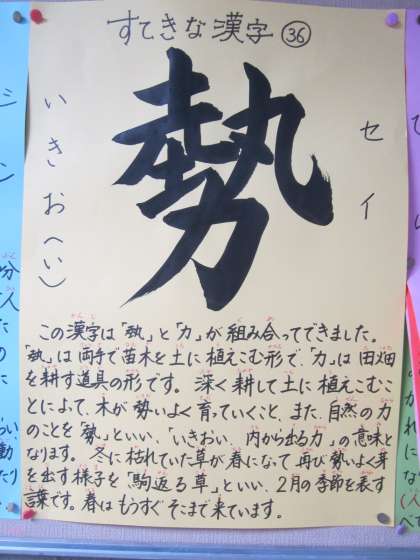 すてきな漢字 ㊱
勢
セイ
いきお(へい)
この漢字は「埶」と「力」が組み合ってできました。
「埶」は両手で苗木を土に植えこむ形で、「力」は田畑
を耕す道具の形です。深く耕して土に植えこむこ
とによって、木が勢いよく育っていくこと、また、自然の力
のことを「勢」といい、「いきおい、内から出る力」の意味と
なります。冬に枯れていた草が春になって再び勢いよく芽
を出す様子を「駒返る草」といい、2月の季節を表す
言葉です。春はもうすぐそこまで来ています。